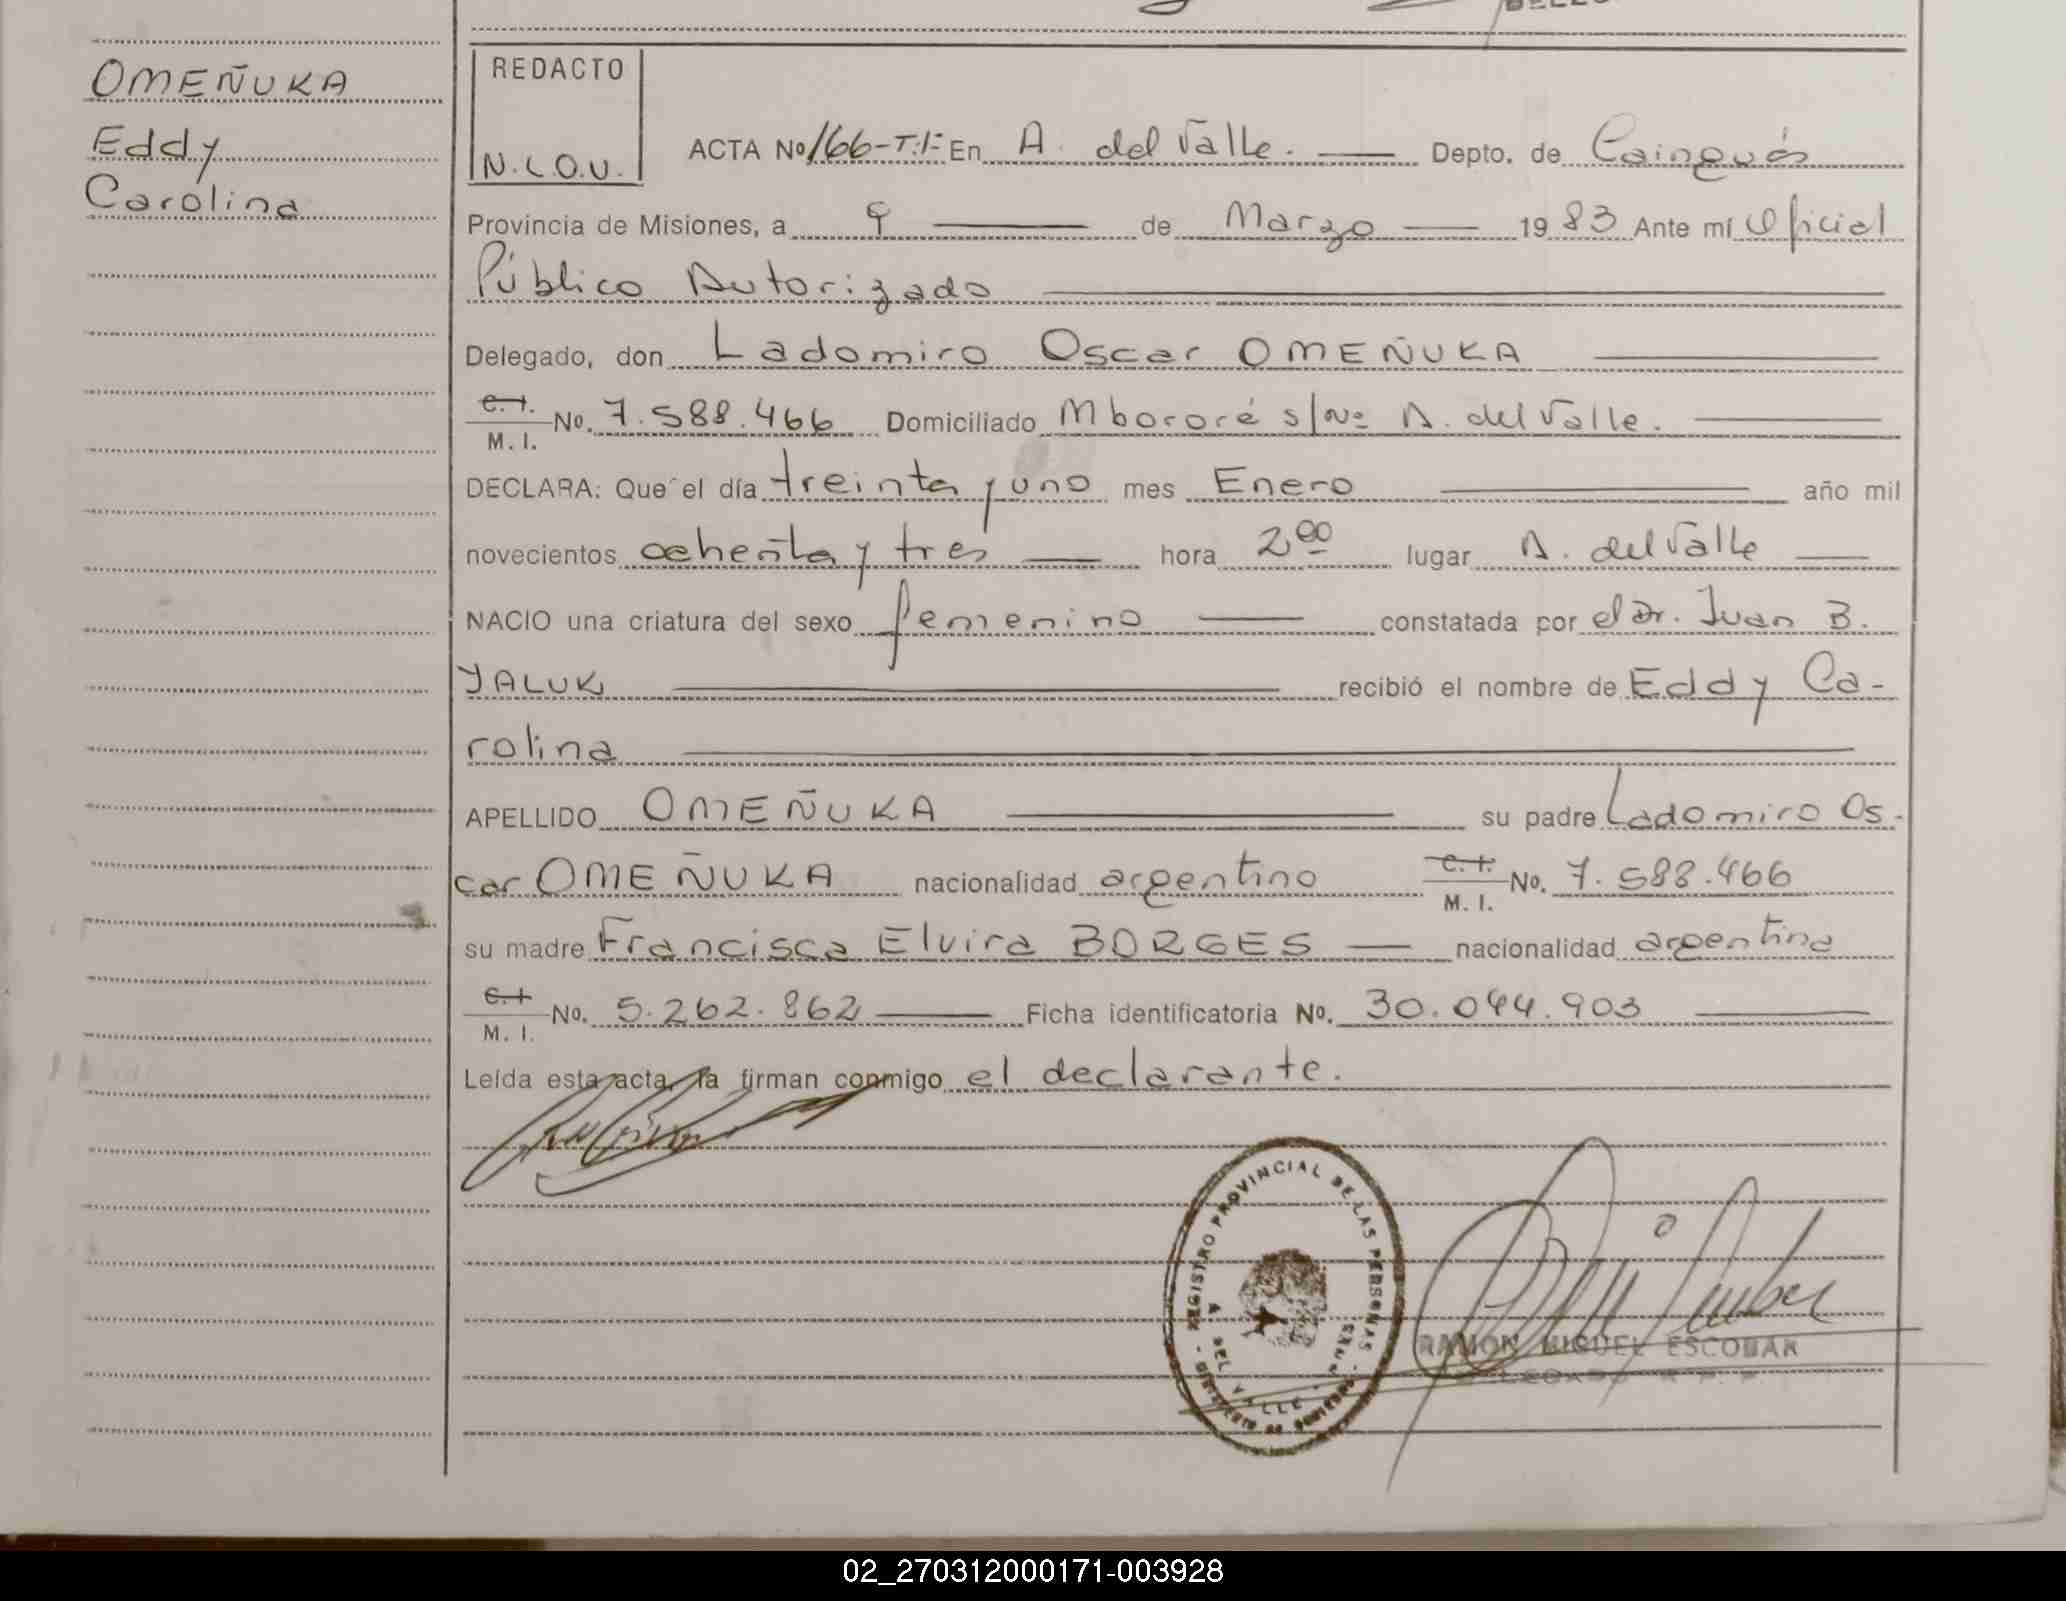 OMEÑUKA
Eddy
Carolina
REDACTO
N.L.O.U.
ACTA Nº 166-T:I- En A. del Valle. — Depto. de Cainguás
Provincia de Misiones, a 9 — de Marzo — 1983 Ante mí Oficial
Público Autorizado
Delegado, don Ladomiro Oscar OMEÑUKA
C. I. M. I. No. 7.588.466 Domiciliado Mbororé s/Nº A. del Valle.
DECLARA: Que el día treinta y uno mes Enero — año mil
novecientos ochenta y tres — hora 2⁰⁰ lugar A. del Valle —
NACIO una criatura del sexo femenino — constatada por el Dr. Juan B.
YALUK — recibió el nombre de Eddy Ca-
rolina
APELLIDO OMEÑUKA — su padre Ladomiro Os-
car OMEÑUKA nacionalidad argentino C. I. M. I. No. 7.588.466
su madre Francisca Elvira BORGES — nacionalidad argentina
C. I. M. I. No. 5.262.862 — Ficha identificatoria No. 30.044.903
Leída esta acta, la firman conmigo el declarante.
REGISTRO PROVINCIAL DE LAS PERSONAS
A. DEL VALLE - MNES.
- MINISTERIO DE GOBIERNO -
RAMON MIGUEL ESCOBAR
02_270312000171-003928